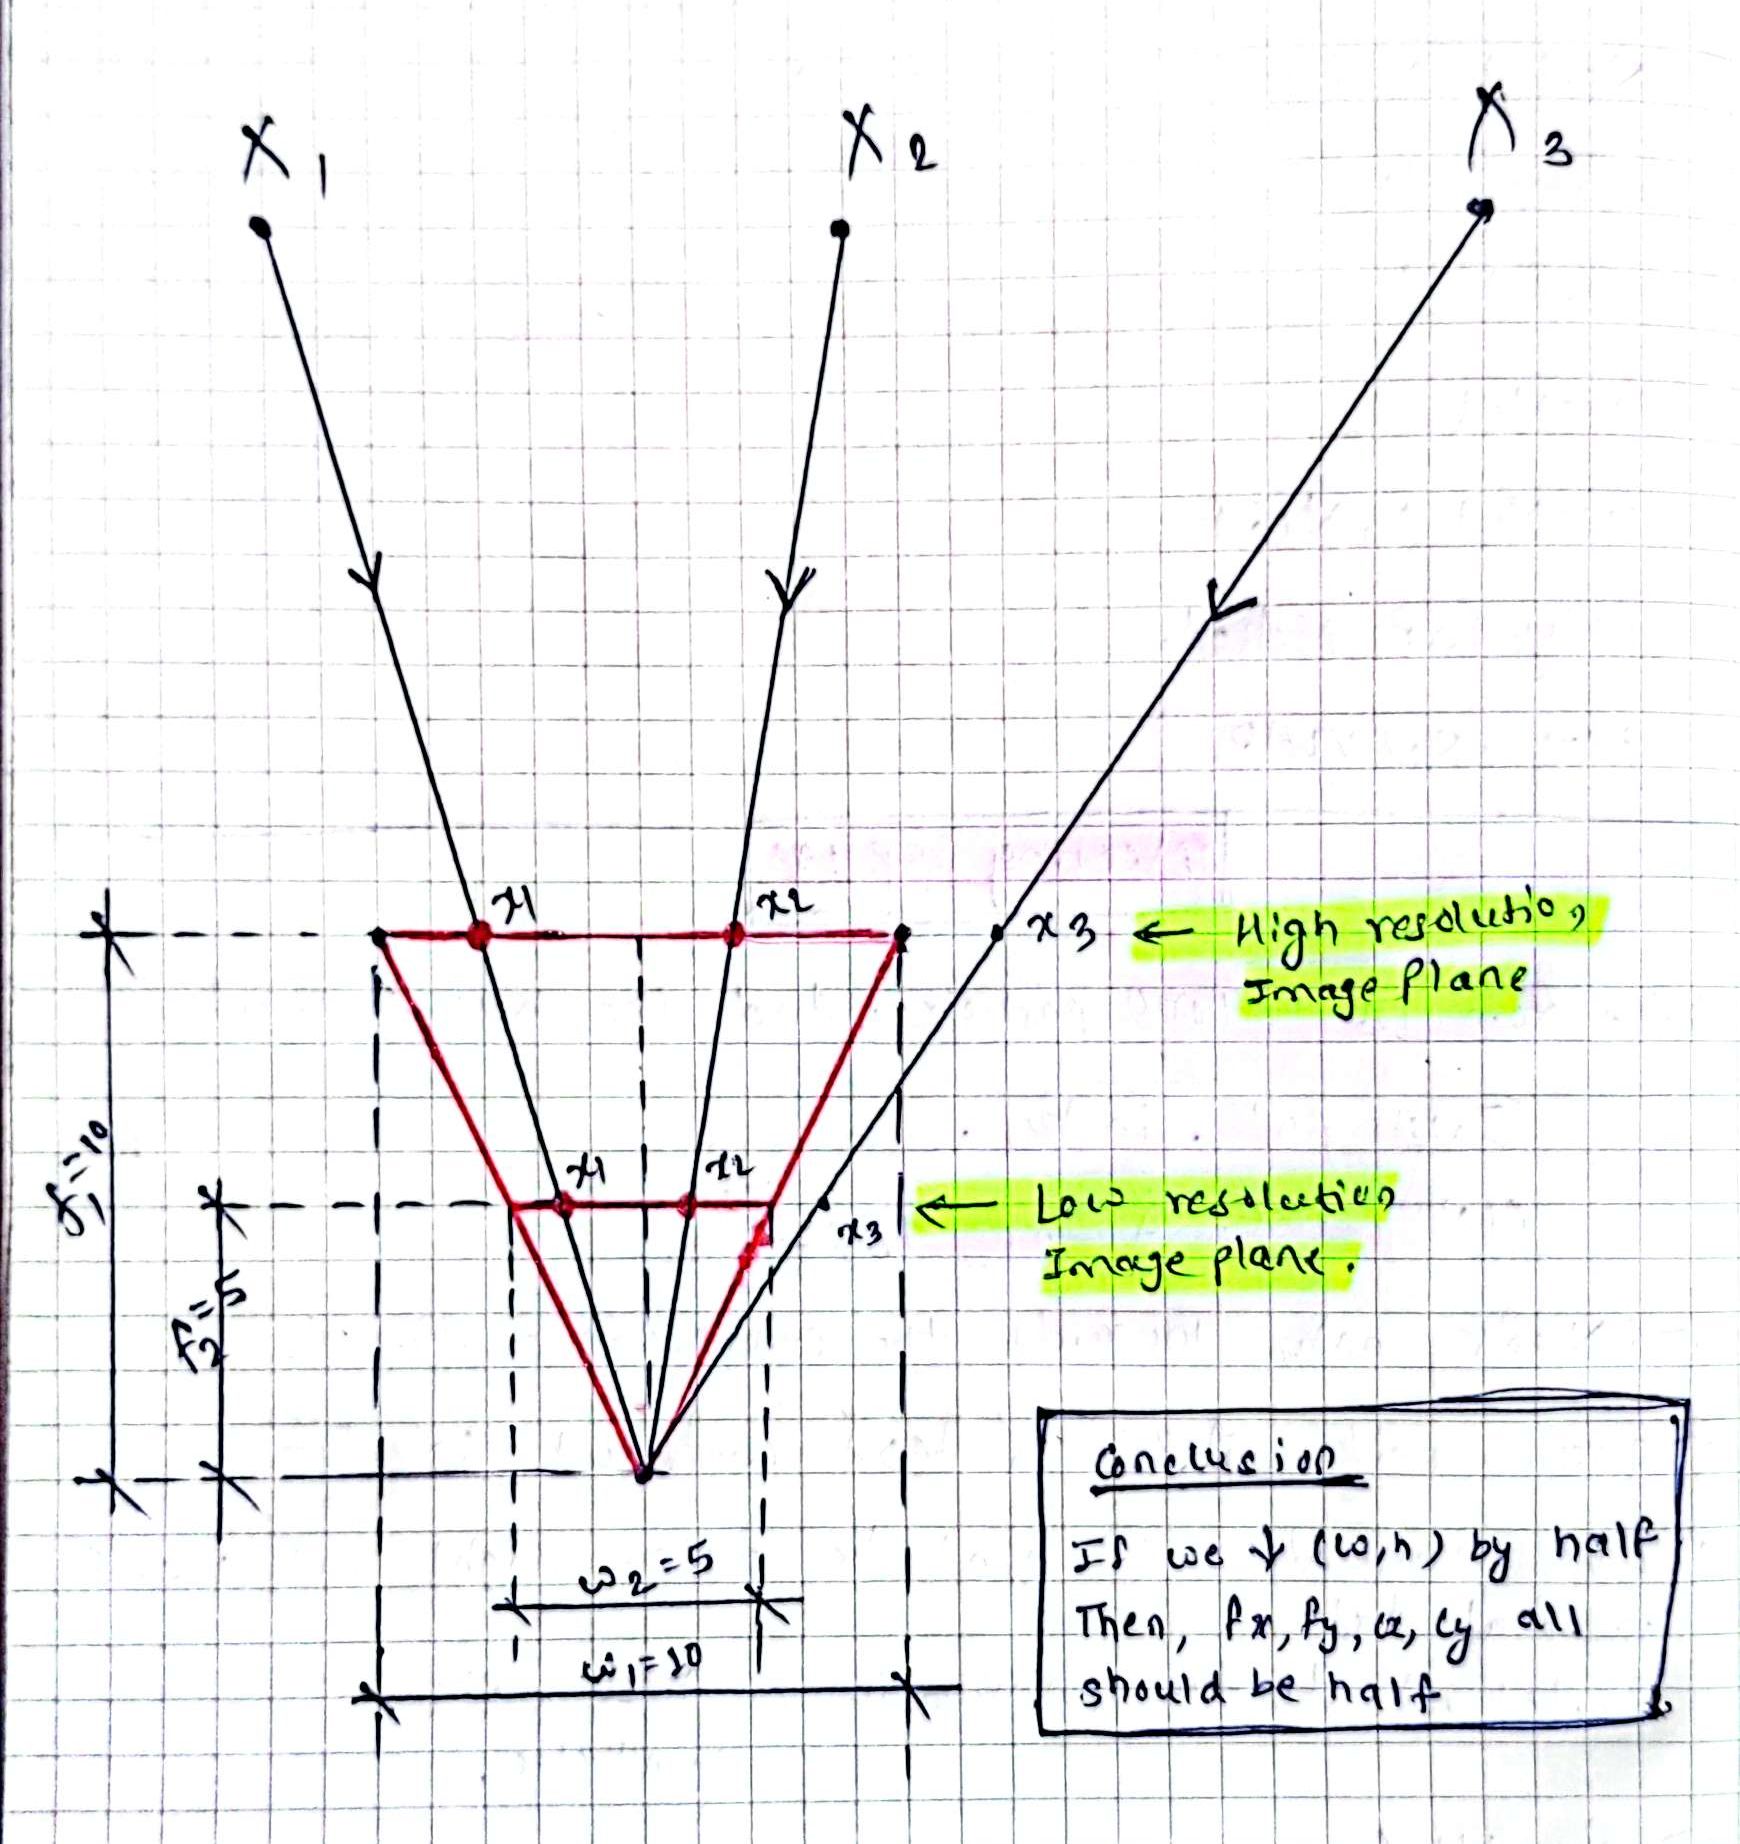 X1
X2
X3
x1
x2
x3 ← High resolution
Image Plane
f1=10
x1
x2
x3
← Low resolution
Image plane.
f2=5
w2=5
w1=10
Conclusion
If we ↓ (w,h) by half
Then, fx, fy, cx, cy all
should be half